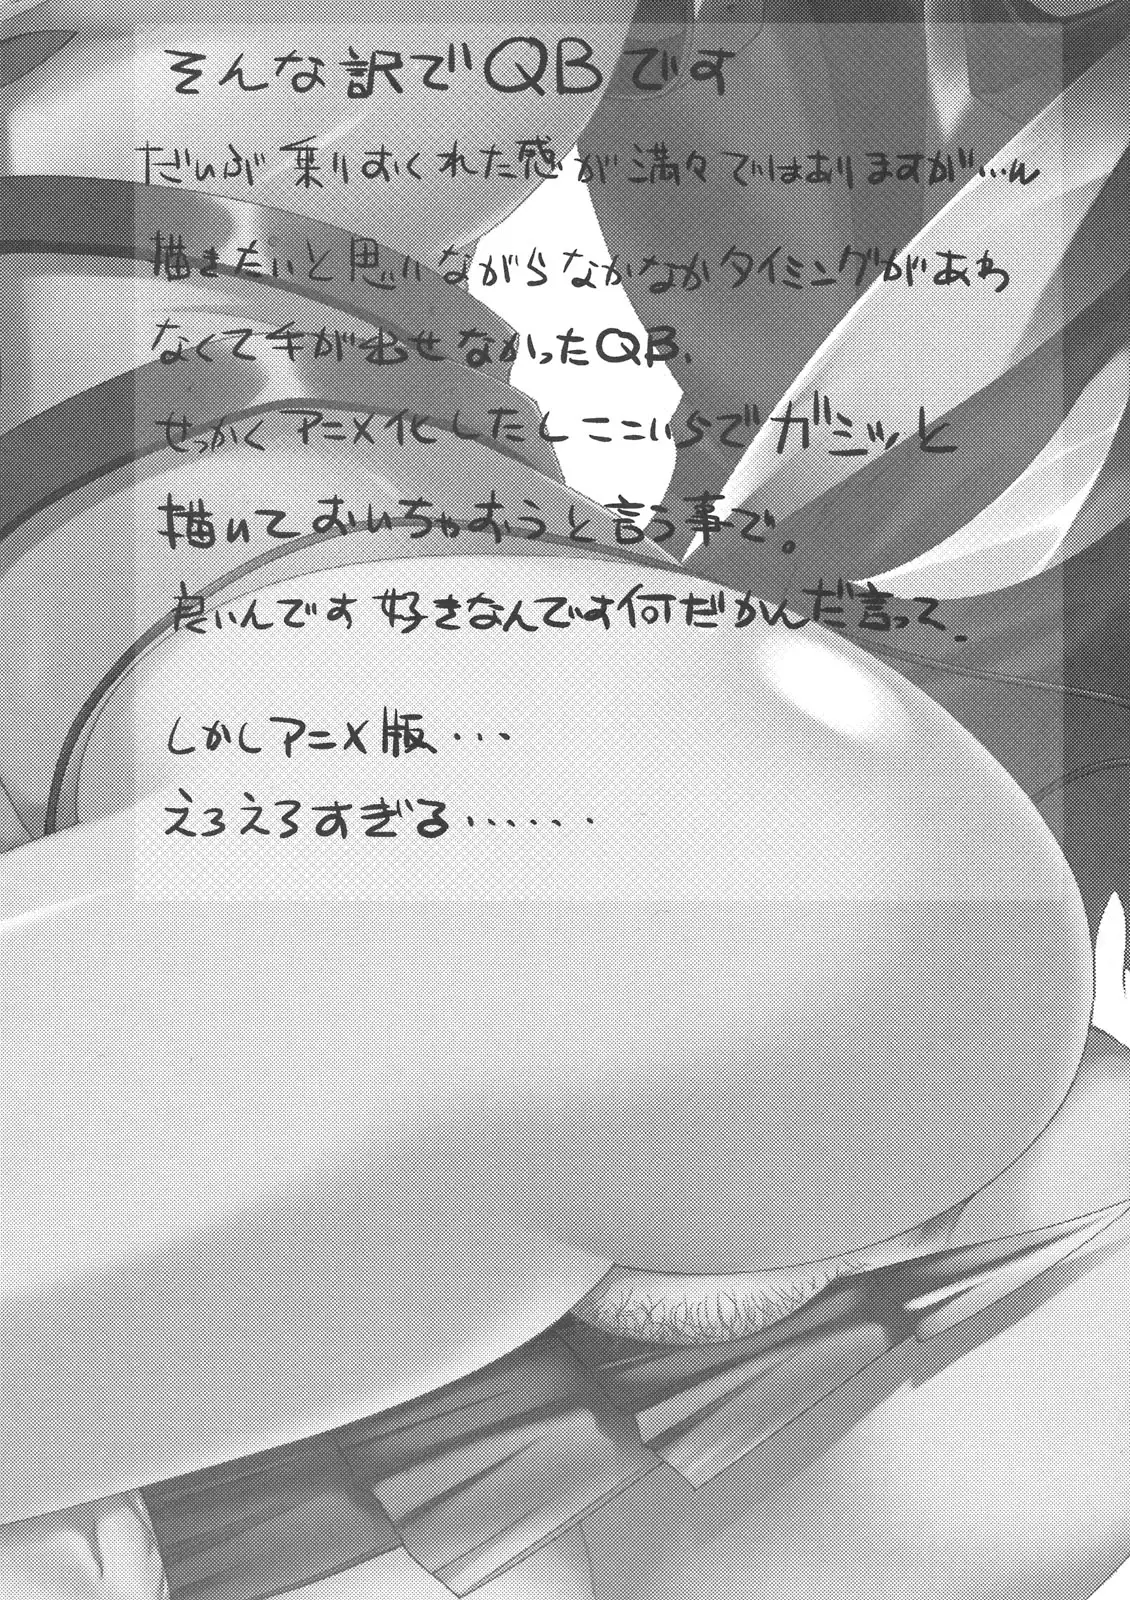 そんな訳でQBです
だいぶ乗りおくれた感が満々ではありますが…ん
描きたいと思いながらなかなかタイミングがあわ
なくて手が出せなかったQB、
せっかくアニメ化したしここいらでガミッと
描いておいちゃおうと言う事で。
良いんです好きなんです何だかんだ言って。
しかしアニメ版・・・
えろえろすぎる・・・・・・